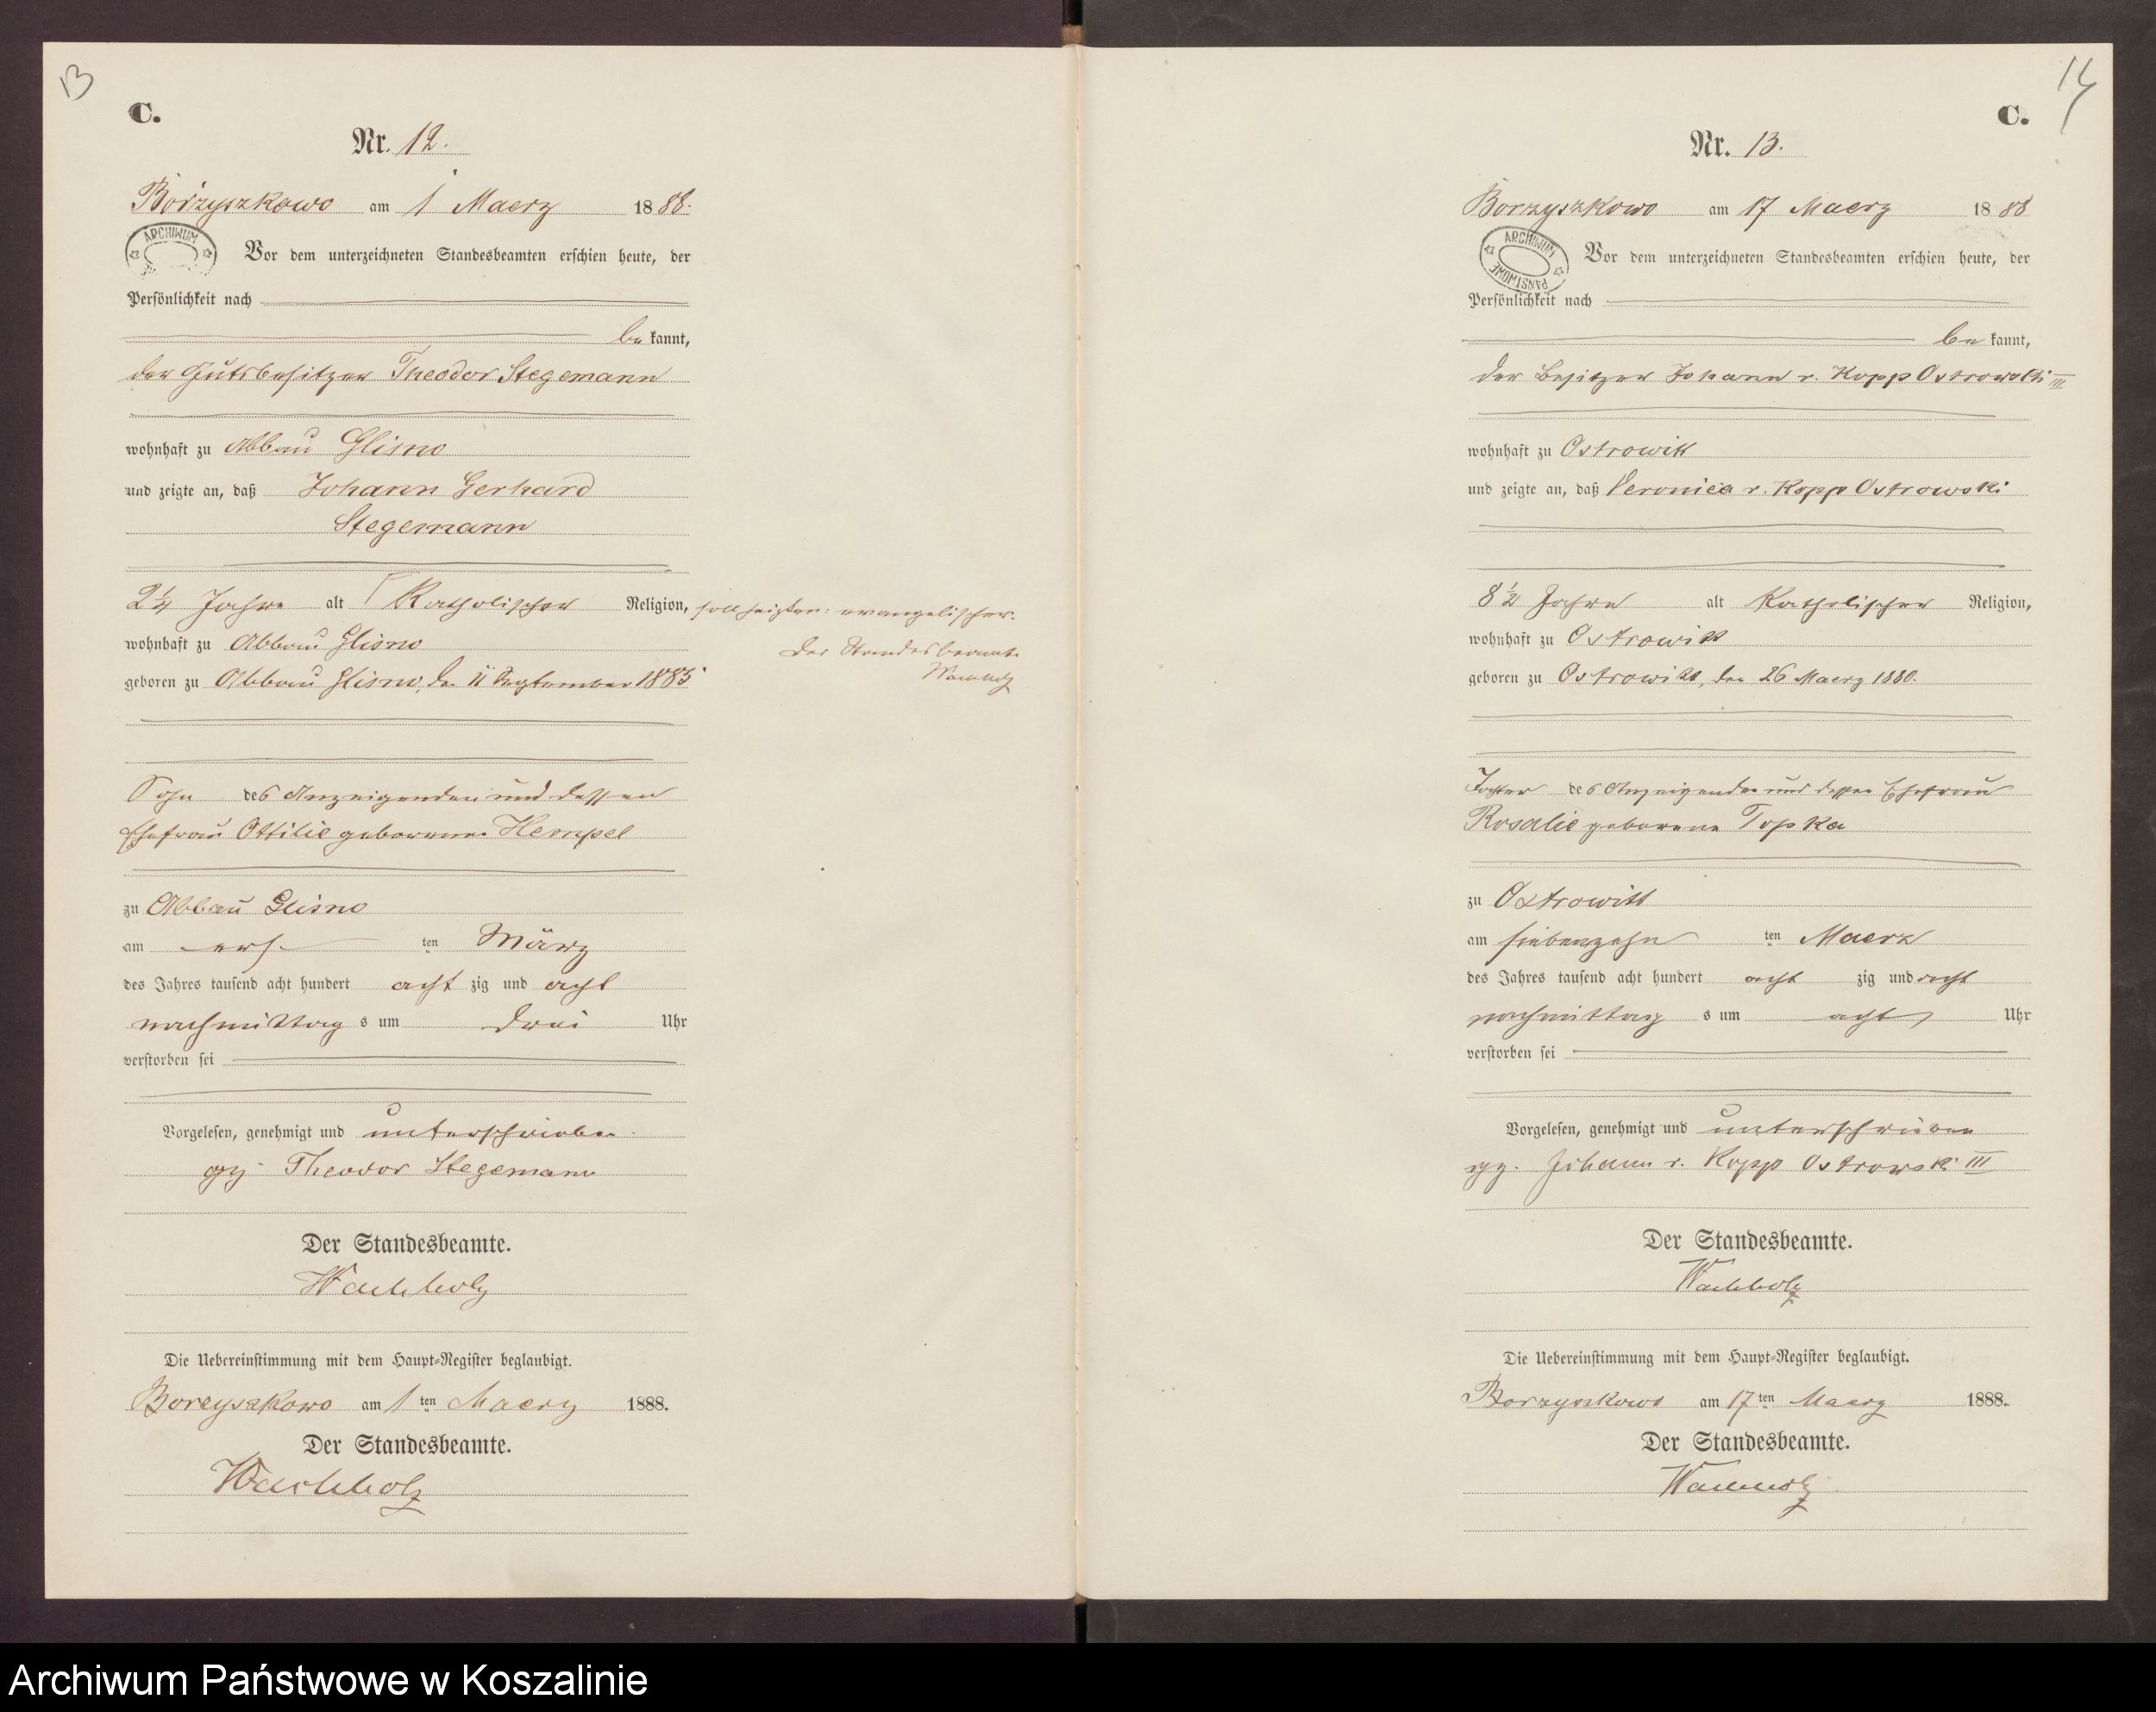 13
C.
Nr. 12.
Borzyszkowo am 1 Maerz 1888.
ARCHIWUM
Vor dem unterzeichneten Standesbeamten erschien heute, der
Persönlichkeit nach
be kannt,
der Gutsbesitzer Theodor Stegemann
wohnhaft zu Abbau Glisno
und zeigte an, daß Johann Gerhard
Stegemann
2 1/4 Jahre alt Katholischer Religion, soll heißen: evangelischer.
wohnhaft zu Abbau Glisno Der Standesbeamte
geboren zu Abbau Glisno, den 11 September 1885 Wachholz
Sohn des Anzeigenden und dessen
Ehefrau Ottilie geborenen Hempel
zu Abbau Glisno
am ers- ten März
des Jahres tausend acht hundert acht zig und acht
nachmittag s um drei Uhr
verstorben sei
Vorgelesen, genehmigt und unterschrieben.
gez. Theodor Stegemann
Der Standesbeamte.
Wachholz
Die Uebereinstimmung mit dem Haupt-Register beglaubigt.
Borzyszkowo am 1 ten Maerz 1888.
Der Standesbeamte.
Wachholz
14
C.
Nr. 13.
Borzyszkowo am 17 Maerz 1888
ARCHIWUM PAŃSTWOWE
Vor dem unterzeichneten Standesbeamten erschien heute, der
Persönlichkeit nach
be kannt,
der Besitzer Johann v. Kopp Ostrowski III
wohnhaft zu Ostrowitt
und zeigte an, daß Veronica v. Kopp Ostrowski
8 1/2 Jahre alt Katholischer Religion,
wohnhaft zu Ostrowitt
geboren zu Ostrowitt, den 26 Maerz 1880.
Tochter des Anzeigenden und dessen Ehefrau
Rosalie geborene Topka
zu Ostrowitt
am siebenzehn ten Maerz
des Jahres tausend acht hundert acht zig und acht
nachmittag s um acht Uhr
verstorben sei
Vorgelesen, genehmigt und unterschrieben
gez. Johann v. Kopp Ostrowski III
Der Standesbeamte.
Wachholz
Die Uebereinstimmung mit dem Haupt-Register beglaubigt.
Borzyszkowo am 17 ten Maerz 1888.
Der Standesbeamte.
Wachholz
Archiwum Państwowe w Koszalinie